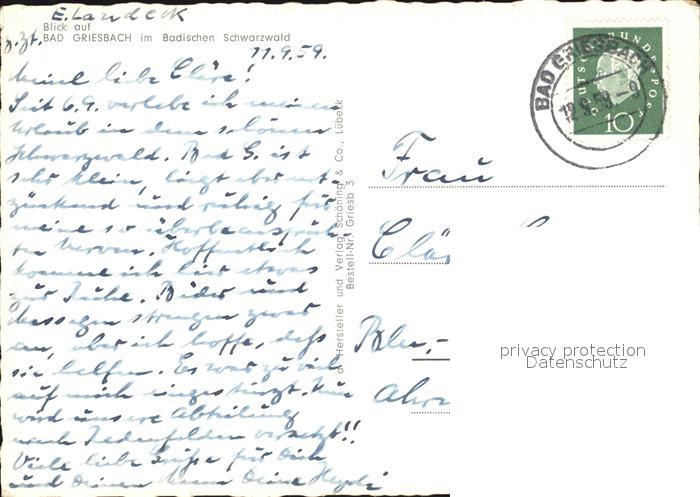 E. Landeck
Blick auf
z. Zt. BAD GRIESBACH im Badischen Schwarzwald
11.9.59.
Meine liebe Cläre!
Seit 6.9. verlebe ich meinen
Urlaub in dem schönen
Schwarzwald. Bad G. ist
sehr klein, liegt aber ent-
zückend und ruhig für
meine so überbeanspruch-
ten Nerven. Hoffentlich
komme ich hier etwas
zur Ruhe. Bäder und
Massagen strengen zwar
an, aber ich hoffe, daß
sie helfen. Es war zu viel
auf mich eingestürzt. Nun
wird unsere Abteilung
nach versetzt!!
Viele liebe Grüße für Dich
und Deinen Mann Deine
Hersteller und Verlag Schöning & Co., Lübeck
Bestell-Nr. Griesb 3
DEUTSCHE BUNDESPOST
10
BAD GRIESBACH
12.9.59.-9
Frau
Clä
Blu,-
Ahr
privacy protection
Datenschutz